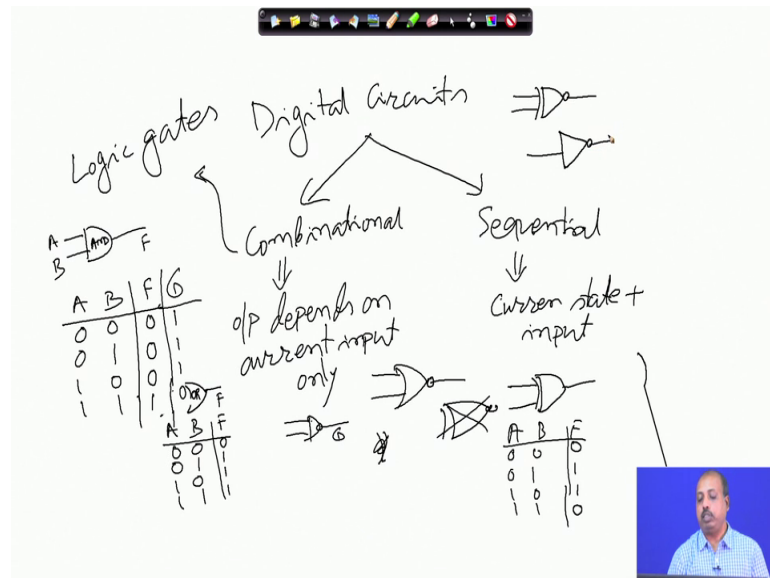 Digital Circuits
Logic gates
Combinational
Sequential
o/p depends on
current input
only
Curren state +
input
A
B
AND
F
A B F G
0 0 0 1
0 1 0 1
1 0 0 1
1 1 1
OR
F
A B F
0 0 0
0 1 1
1 0 1
1 1 1
G
A B F
0 0 0
0 1 1
1 0 1
1 1 0